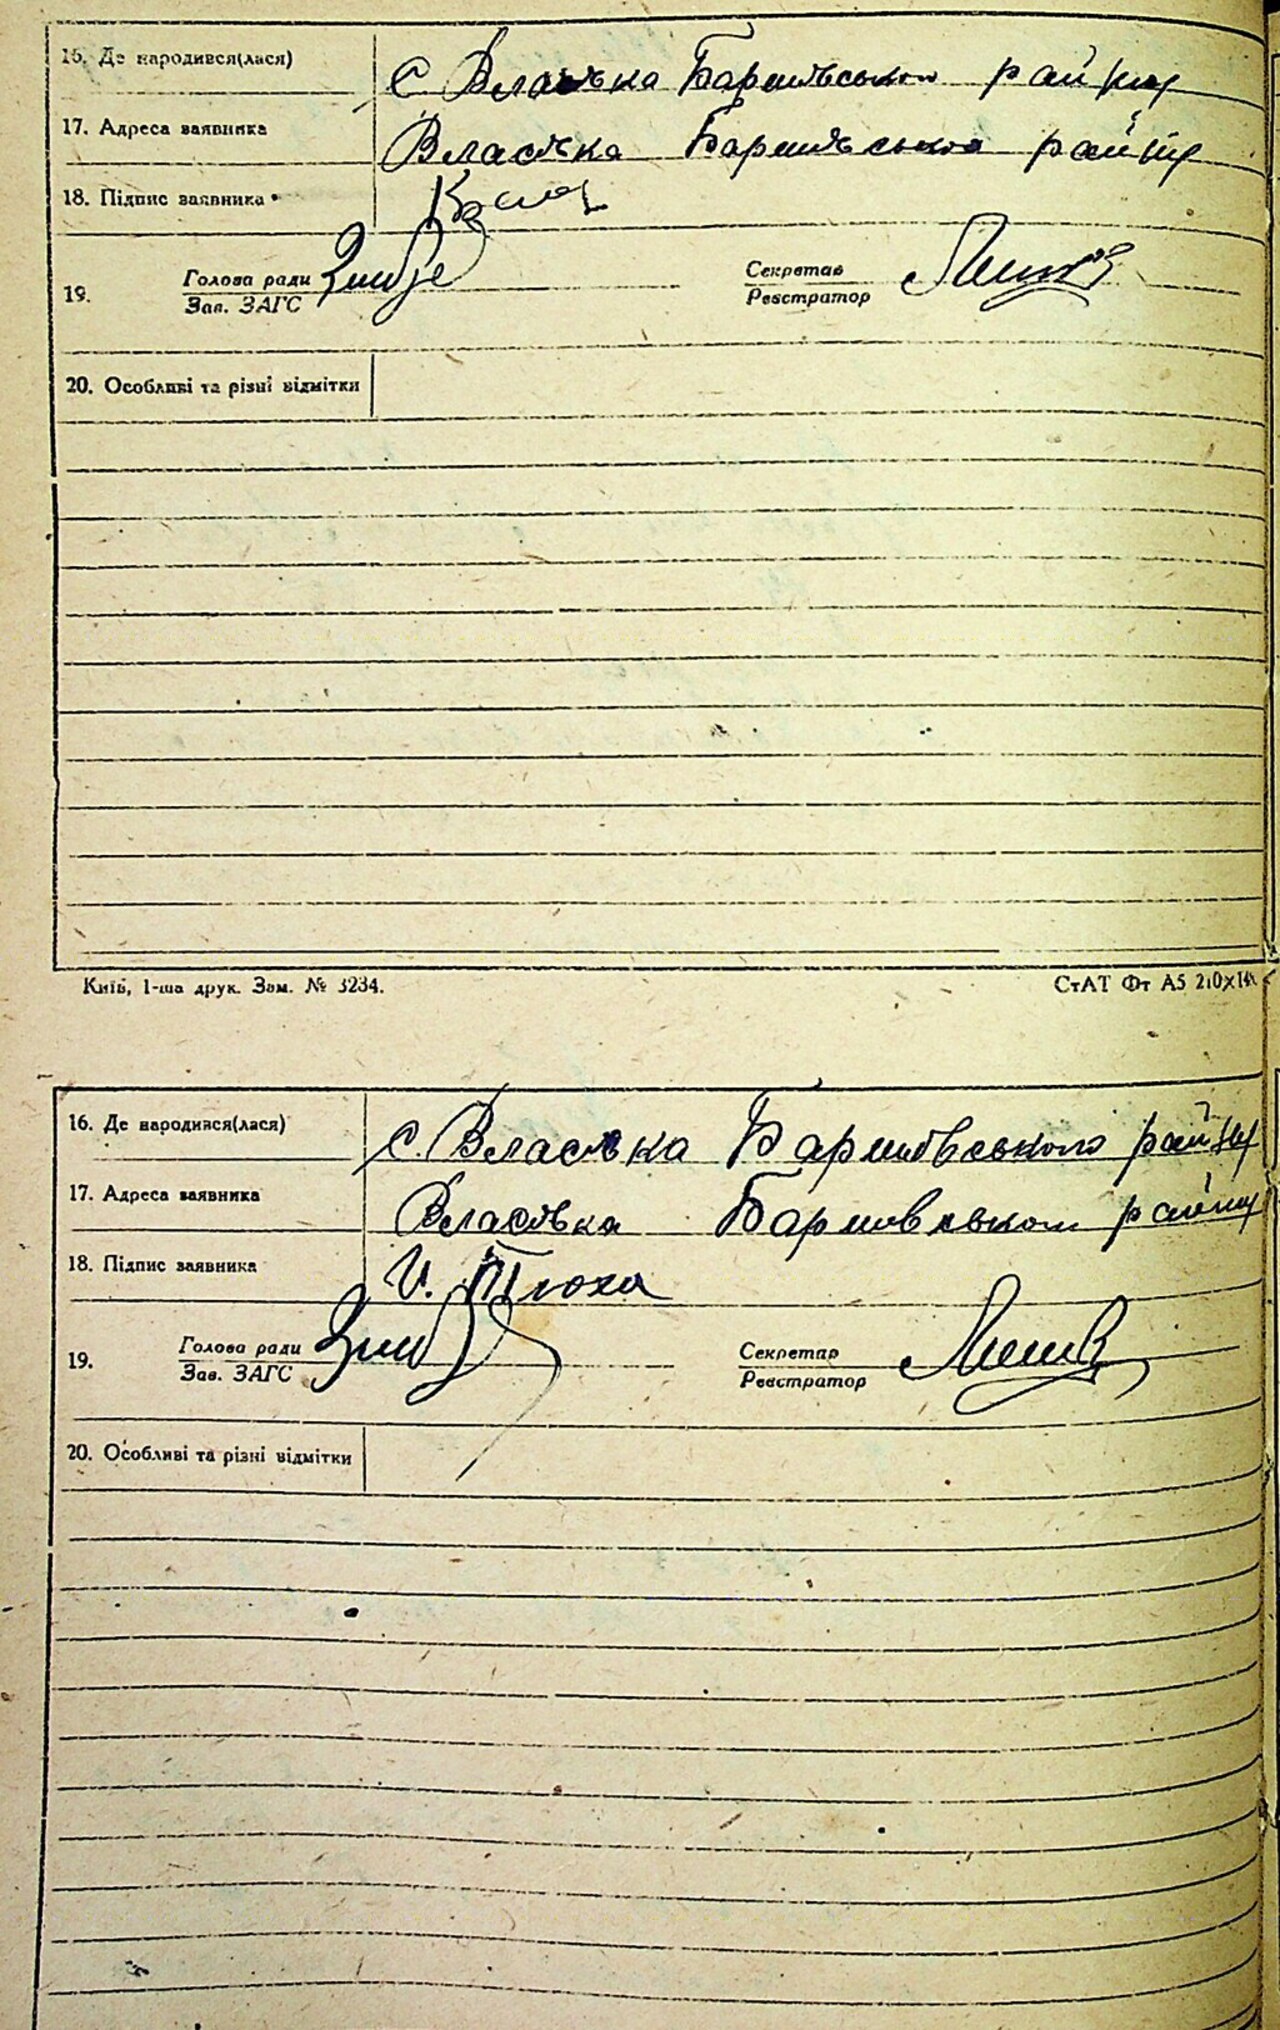 16. Де народився(лася) с. Власівка Баришівського району
17. Адреса заявника Власівка Баришівського району
18. Підпис заявника
19. Голова ради Секретар
Зав. ЗАГС Реєстратор
20. Особливі та різні відмітки
Київ, 1-ша друк. Зам. № 3234. СтАТ Фт А5 210×14
16. Де народився(лася) с. Власівка Баришівського району
17. Адреса заявника Власівка Баришівського району
18. Підпис заявника И. Тюха
19. Голова ради Секретар
Зав. ЗАГС Реєстратор
20. Особливі та різні відмітки